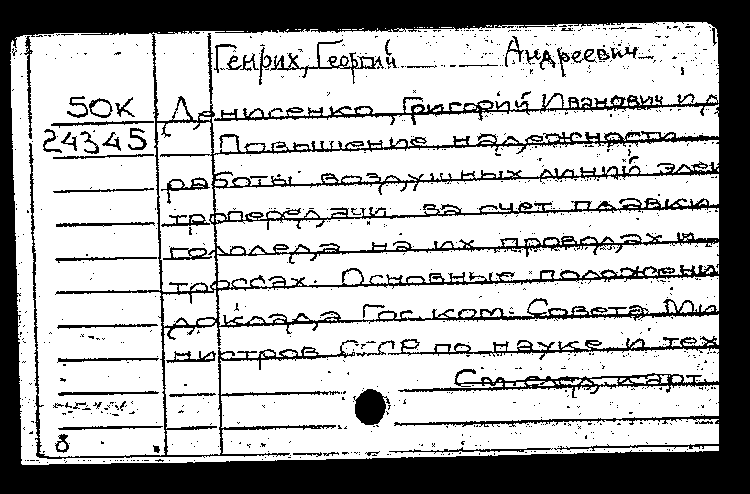 Генрих, Георгий Андреевич
50К Денисенко, Григорий Иванович и д
24345 Повышение надежности
работы воздушных линий элек
тропередачи за счет плавки
гололеда на их проводах и
троссах. Основные положени
доклада Гос. ком. Совета Ми
нистров СССР по науке и тех
См. след. карт.
8